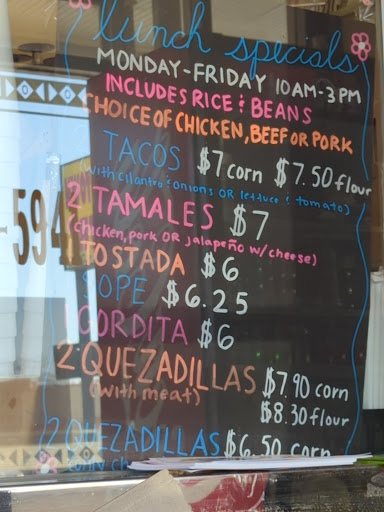 lunch specials
MONDAY-FRIDAY 10AM-3PM
INCLUDES RICE & BEANS
CHOICE OF CHICKEN, BEEF OR PORK
TACOS $7 corn $7.50 flour
(with cilantro & onions OR lettuce & tomato)
2 TAMALES $7
(chicken, pork OR jalapeño w/cheese)
TOSTADA $6
OPE $6.25
GORDITA $6
2 QUEZADILLAS $7.90 corn
(with meat) $8.30 flour
2 QUEZADILLAS $6.50 corn
-594